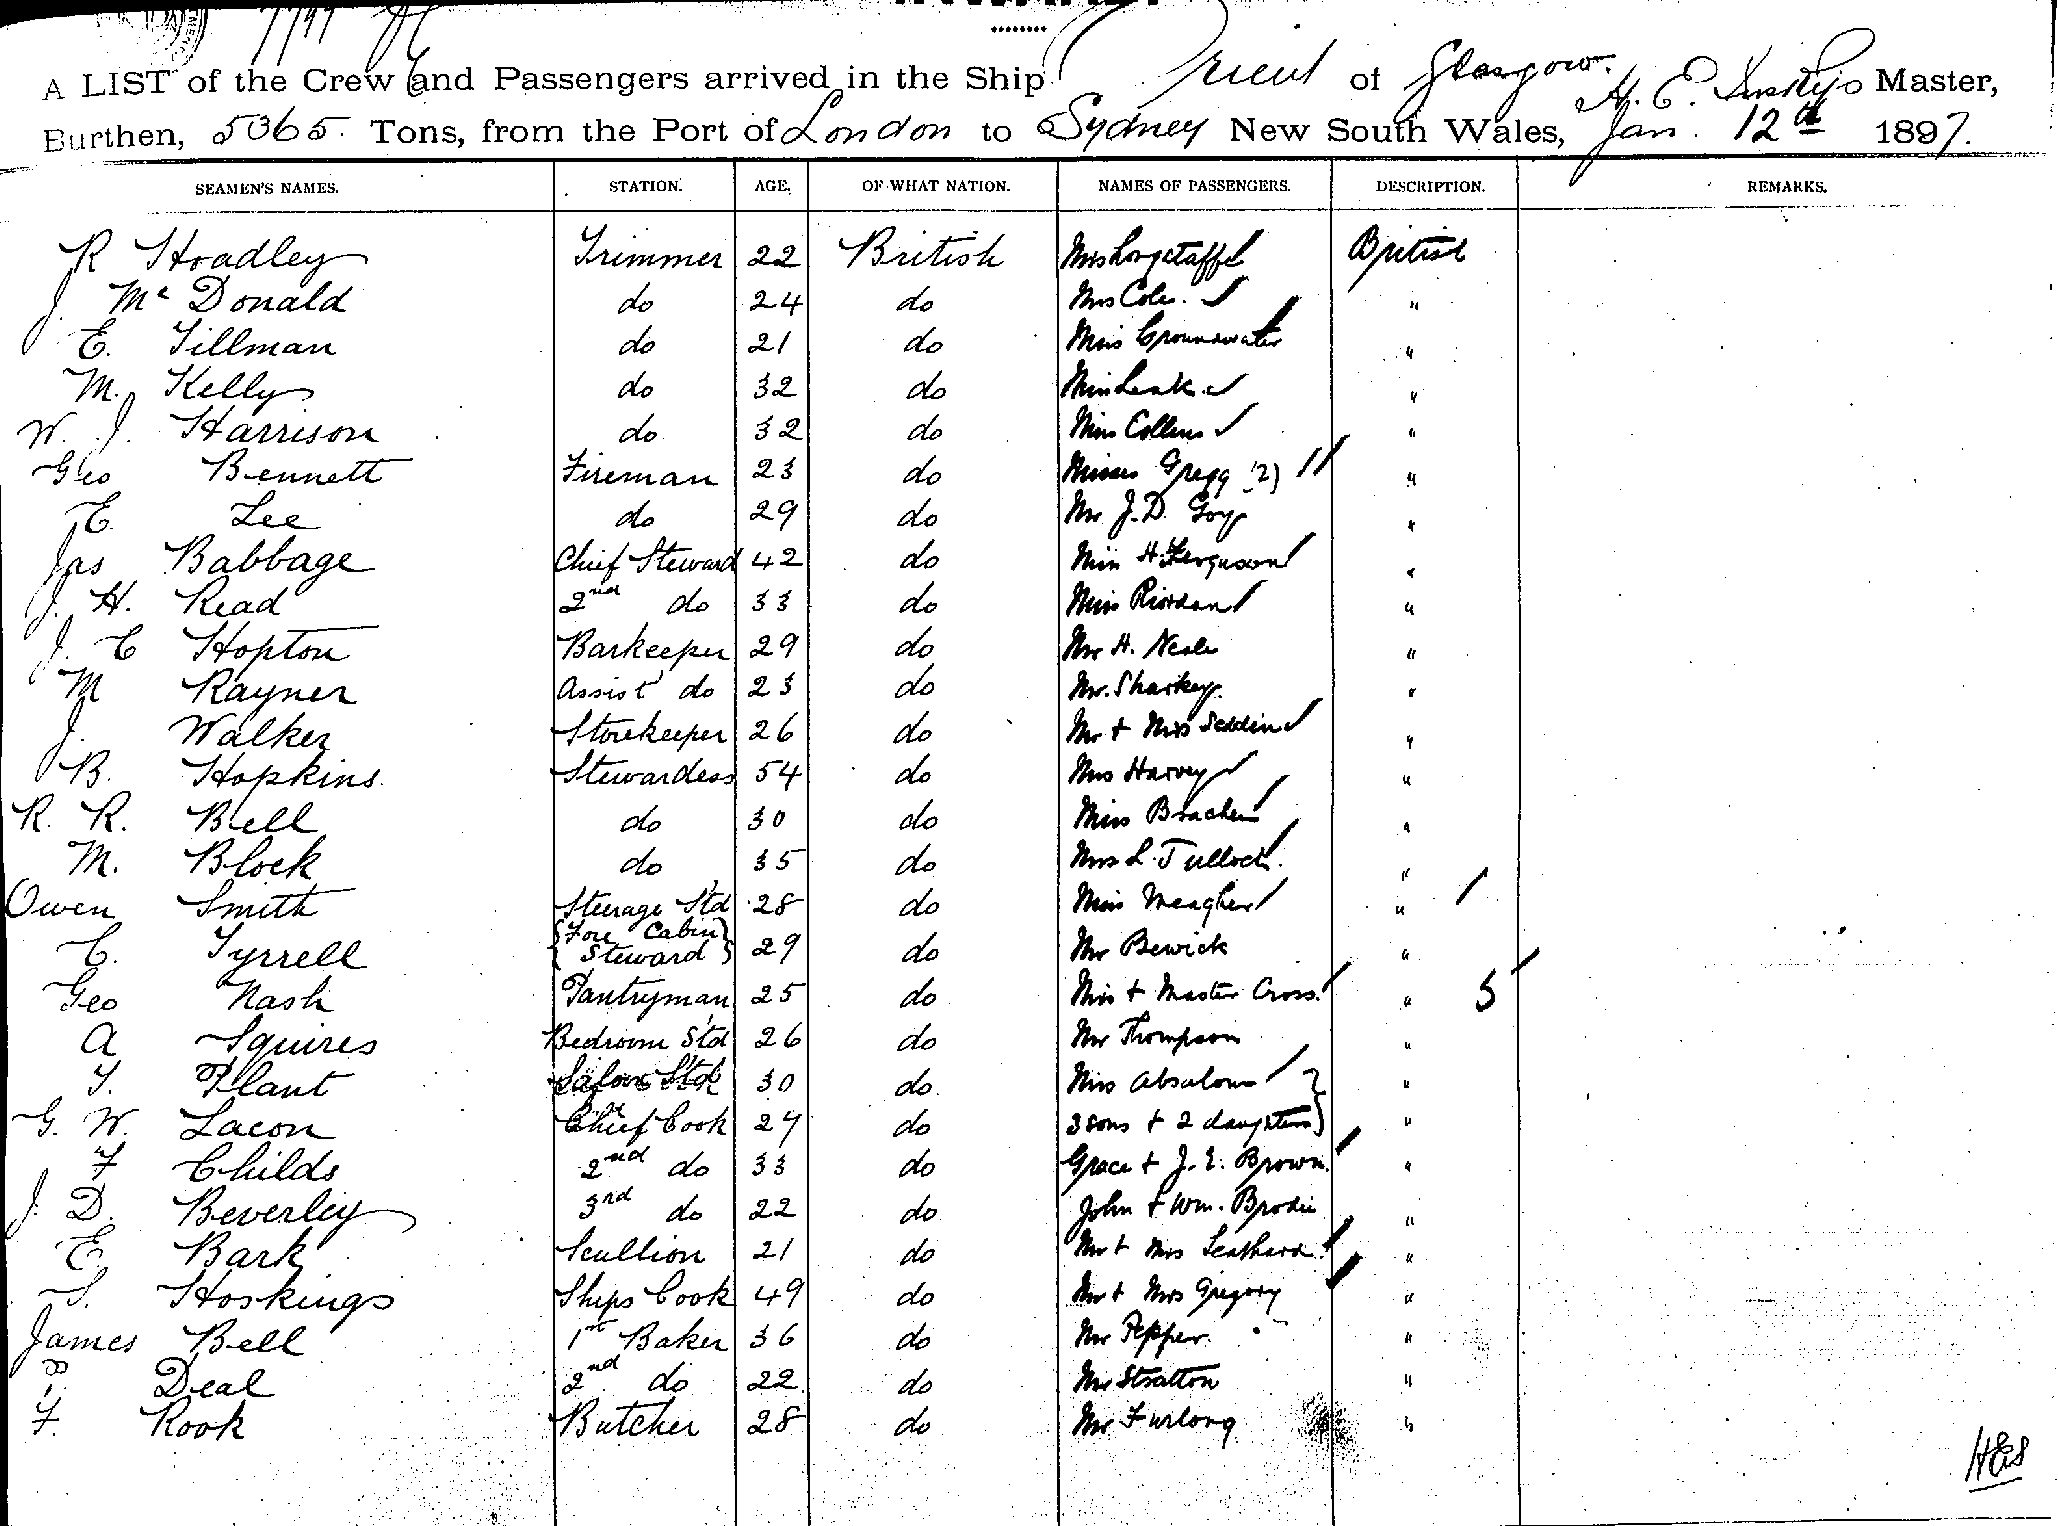 A LIST of the Crew and Passengers arrived in the Ship Orient of Glasgow. Master,
Burthen, 5365 Tons, from the Port of London to Sydney New South Wales, Jan. 12th 1897.
SEAMEN'S NAMES. STATION. AGE. OF WHAT NATION. NAMES OF PASSENGERS. DESCRIPTION. REMARKS.
R Hoadley Trimmer 22 British Mrs Longstaffe British
J. Mc Donald do 24 do Mrs Cole. "
E. Tillman do 21 do Miss Groundwater "
M. Kelly do 32 do Miss Leak "
W. J. Harrison do 32 do Miss Collins "
Geo Bennett Fireman 23 do Misses Gregg (2) "
E. Lee do 29 do Mr J. D. "
Jas Babbage Chief Steward 42 do Miss H. Ferguson "
J. H. Read 2nd do 33 do Miss Riordan "
J. C Hopton Barkeeper 29 do Mr H. Neale "
M Rayner Assist do 23 do Mr. Sharkey. "
J. Walker Storekeeper 26 do Mr + Miss Seddin "
B. Hopkins. Stewardess 54 do Mrs Harvey "
R. R. Bell do 30 do Miss Bracken "
M. Block do 35 do Mrs L. Tulloch. "
Owen Smith Steerage Std 28 do Miss Meagher "
C. Tyrrell {Fore Cabin Steward} 29 do Mr Bewick "
Geo Nash Pantryman 25 do Miss + Master Cross. " 5
A Squires Bedroom Std 26 do Mr Thompson "
T. Plant Saloon 30 do Mrs Absalom "
G. W. Lacon Chief Cook 27 do 3 sons + 2 daughters } "
F Childs 2nd do 33 do Grace + J. E. Brown. "
J. D. Beverley 3rd do 22 do John + Wm. Brodie "
E. Bark Scullion 21 do Mr + Mrs "
S. Hoskings Ships Cook 49 do Mr + Mrs Gregory "
James Bell 1st Baker 36 do Mr Pepper. "
Deal 2nd do 22 do Mr Stratton "
F. Rook Butcher 28 do Mr Furlong "
HES